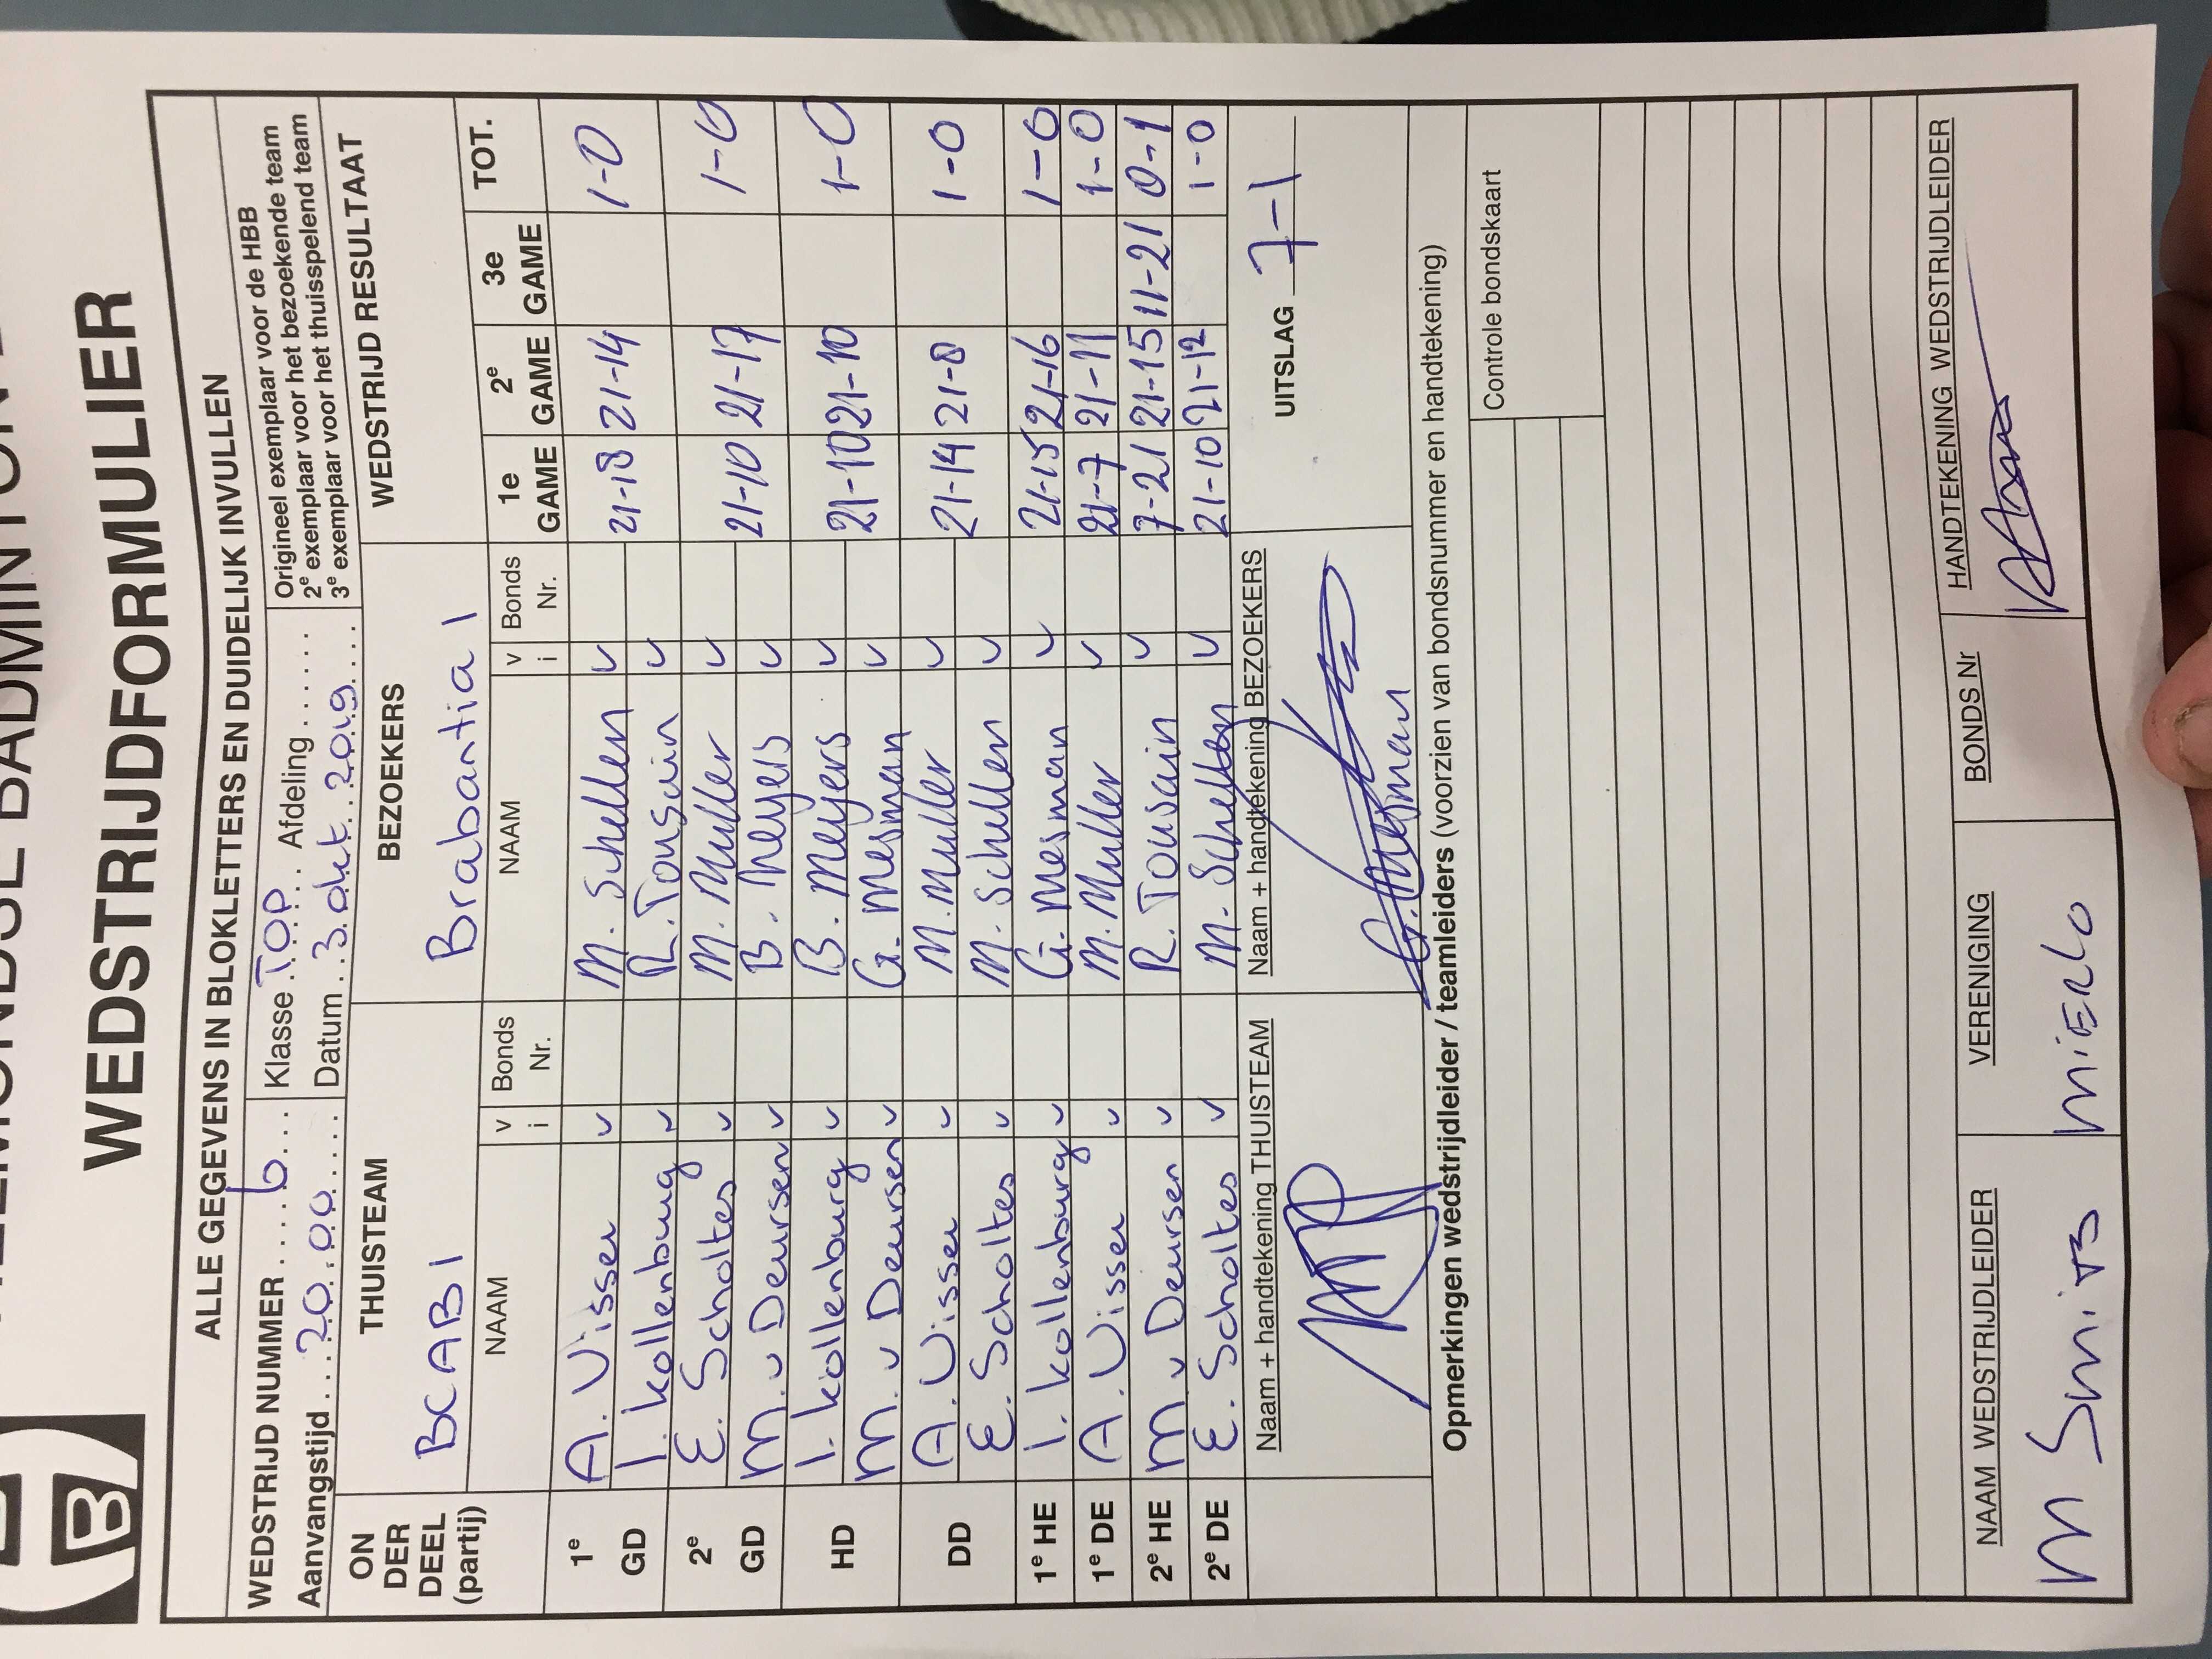 WEDSTRIJDFORMULIER
ALLE GEGEVENS IN BLOKLETTERS EN DUIDELIJK INVULLEN
WEDSTRIJD NUMMER .... 6 ... Klasse TOP Afdeling ...... Origineel exemplaar voor de HBB
Aanvangstijd ... 20.00 ..... Datum .. 3. okt. 2019 .... 2e exemplaar voor het bezoekende team
3e exemplaar voor het thuisspelend team
ON DER DEEL (partij) THUISTEAM BEZOEKERS WEDSTRIJD RESULTAAT
BCAB 1 Brabantia 1
NAAM v i Bonds Nr. NAAM v i Bonds Nr. 1e GAME 2e GAME 3e GAME TOT.
1e GD A. Visser v M. Schellen v 21-18 21-14 1-0
I. Kollenburg v R. Tousain v
2e GD E. Scholtes v M. Muller v 21-10 21-17 1-0
M. v Deursen v B. Meyers v
HD I. Kollenburg v B. Meyers v 21-10 21-10 1-0
M. v Deursen v G. Mesman v
DD A. Visser v M. Muller v 21-14 21-8 1-0
E. Scholtes v M. Schellen v
1e HE I. Kollenburg v G. Mesman v 21-15 21-16 1-0
1e DE A. Visser v M. Muller v 21-7 21-11 1-0
2e HE M v Deursen v R. Tousain v 7-21 21-15 11-21 0-1
2e DE E. Scholtes v M. Schellen v 21-10 21-12 1-0
Naam + handtekening THUISTEAM Naam + handtekening BEZOEKERS UITSLAG 7-1
G. Mesman
Opmerkingen wedstrijdleider / teamleiders (voorzien van bondsnummer en handtekening)
Controle bondskaart
NAAM WEDSTRIJDLEIDER VERENIGING BONDS Nr HANDTEKENING WEDSTRIJDLEIDER
M Smits MiERLO